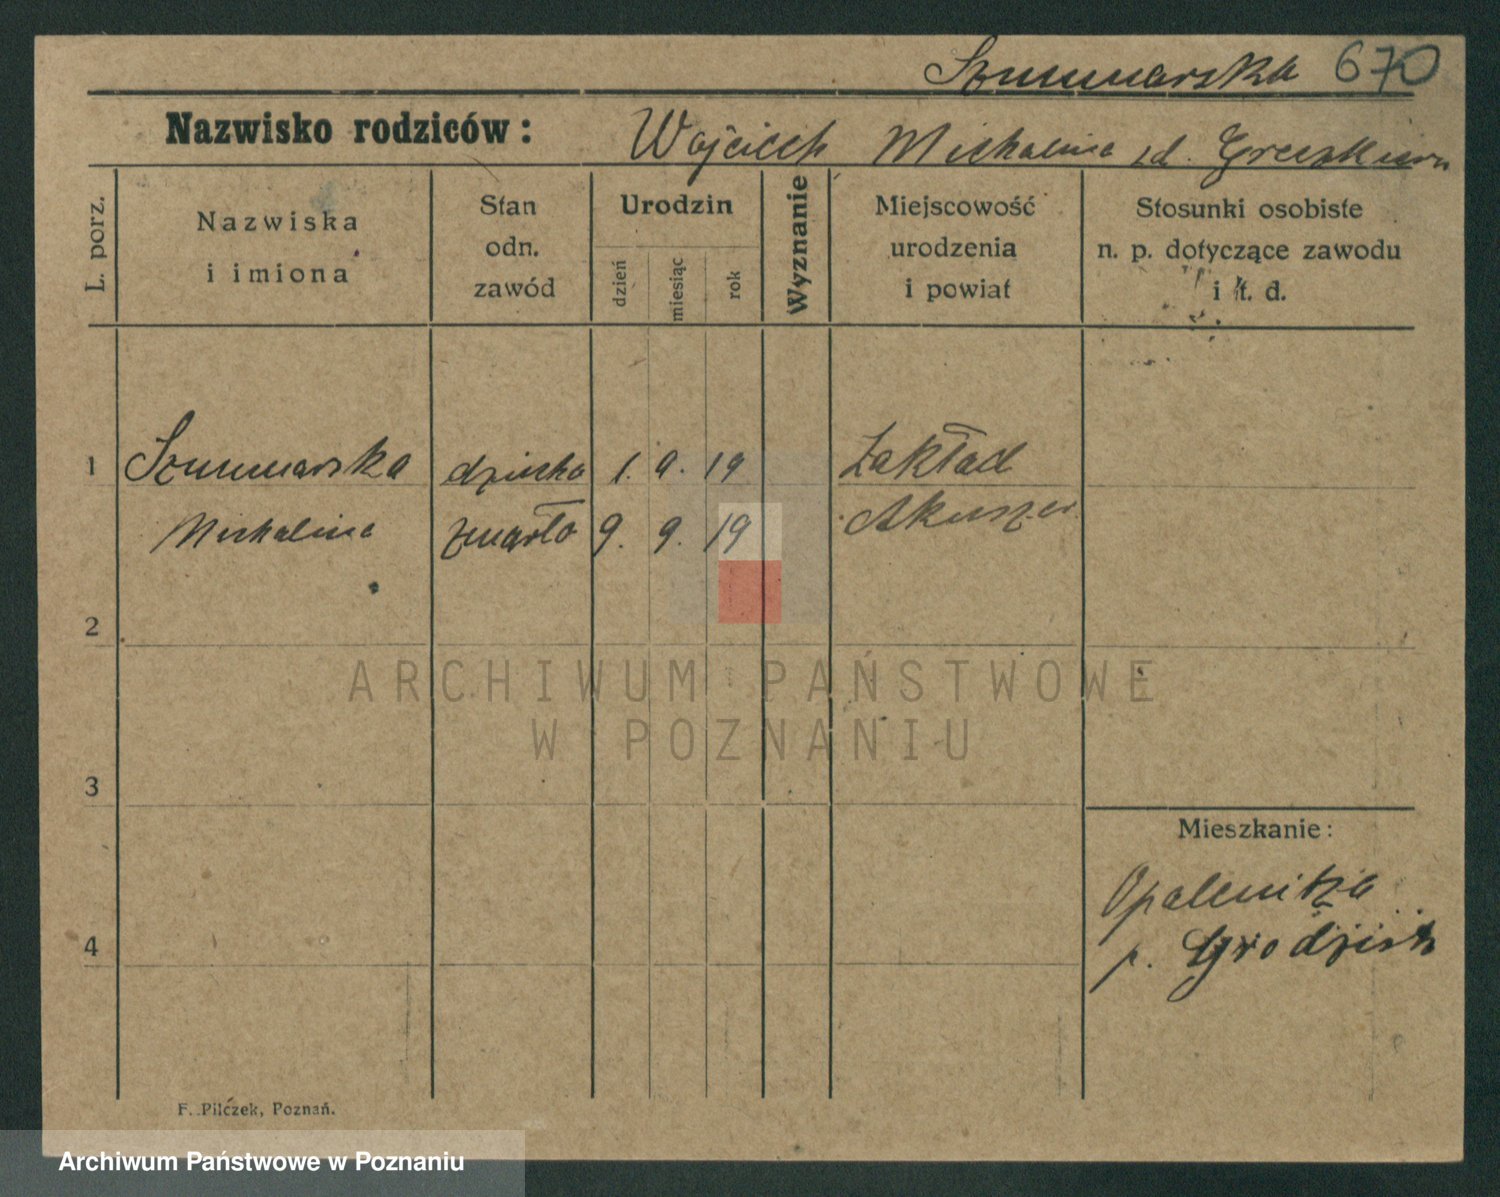 Szumarska 670
Nazwisko rodziców: Wojciech Michalina
L. porz.
Nazwiska
i imiona
Stan
odn.
zawód
Urodzin
dzień
miesiąc
rok
Wyznanie
Miejscowość
urodzenia
i powiat
Stosunki osobiste
n. p. dotyczące zawodu
i t. d.
1 dziecko 1. 9. 19 Zakład
Michalina zmarło 9. 9. 19 Akuszer
2
3
4
Mieszkanie:
Opalenica
p. Grodzisk
F. Pilczek, Poznań.
ARCHIWUM PAŃSTWOWE
W POZNANIU
Archiwum Państwowe w Poznaniu